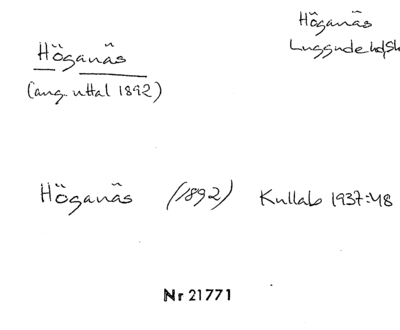 Höganäs
Luggude hd, Sk
Höganäs
(ang. uttal 1892)
Höganäs (1892) Kullab 1937:48
Nr 21771